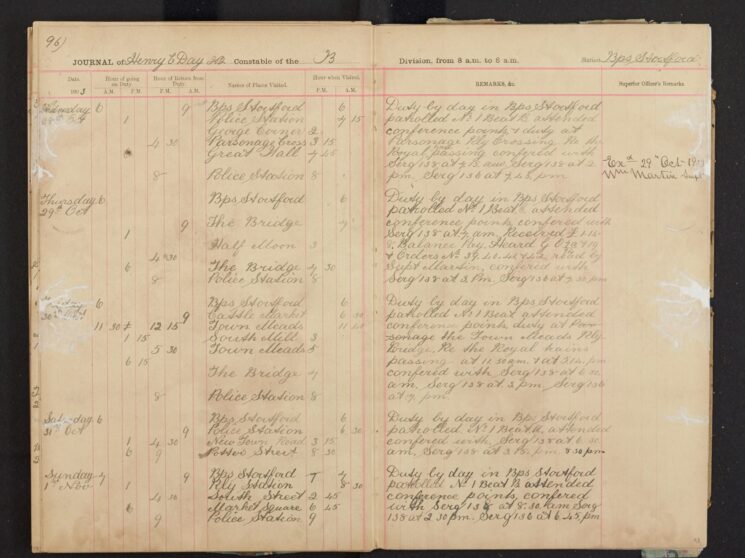 96)
JOURNAL of Henry E Day Constable of the B Division, from 8 a.m. to 8 a.m. Station Bps Stortford
Date. Hour of going on Duty Hour of Return from Duty Names of Places Visited. Hour when Visited. REMARKS, &c. Superior Officer's Remarks.
A.M. P.M. P.M. A.M. P.M. A.M.
6 9 Bps Stortford 6 Duty by day in Bps Stortford
28th Oct 1 Police Station 4 15 patrolled No 1 Beat B attended
George Corner 2 conference points & duty at
4 30 Parsonage Cross 3 15 Parsonage Rly Crossing Re the
Great Hall 4 45 Royal passing confered with
Serg 138 at 2
8 Police Station 8 pm Serg 136 at 7.45 pm
Exd 29th Oct 1903
Wm Martin Supt
Thursday 6 Bps Stortford 6 Duty by day in Bps Stortford
29th Oct patrolled No 1 Beat B attended
9 The Bridge 7 conference points confered with
1 Serg 138 at 7 am, Received £1.14
Half Moon 3 8, Balance Pay, Heard G.O
4 30 & Orders No 39 read by
6 The Bridge 4 30 Supt Martin, confered with
8 Police Station 8 Serg 138 at 3 Pm, Serg 136 at 4.30 pm
6 Bps Stortford 6 Duty by day in Bps Stortford
30th Oct 9 Cattle Market 6 30 patrolled No 1 Beat attended
11 30 12 15 Town Meads 11 conference points, duty at
1 15 South Mill 3 the Town Meads Rly
5 30 Town Meads 5 Bridge, Re the Royal train
6 15 passing at 11.50 am & at 5.14 pm
The Bridge 7 confered with Serg 138 at 6.30
am, Serg 138 at 3 pm, Serg 136
8 Police Station 8 at 7, pm.
Saturday 6 Bps Stortford 6 Duty by day in Bps Stortford
31st Oct 9 Police Station 6 30 patrolled No 1 Beat B, attended
1 4 30 New Town Road 3 15 confered with, Serg 138 at 6.30
6 9 Potter Street 8 30 am, Serg 138 at 3 Pm. 8.30 pm
Sunday 7 9 Bps Stortford 7 Duty by day in Bps Stortford
1st Nov 1 Rly Station 8 30 patrolled No 1 Beat B attended
4 30 South Street 2 45 conference points, confered
6 Market Square 6 45 with Serg 138 at 8.30 am Serg
9 Police Station 9 138 at 2 30 pm. Serg 136 at 6.45 pm